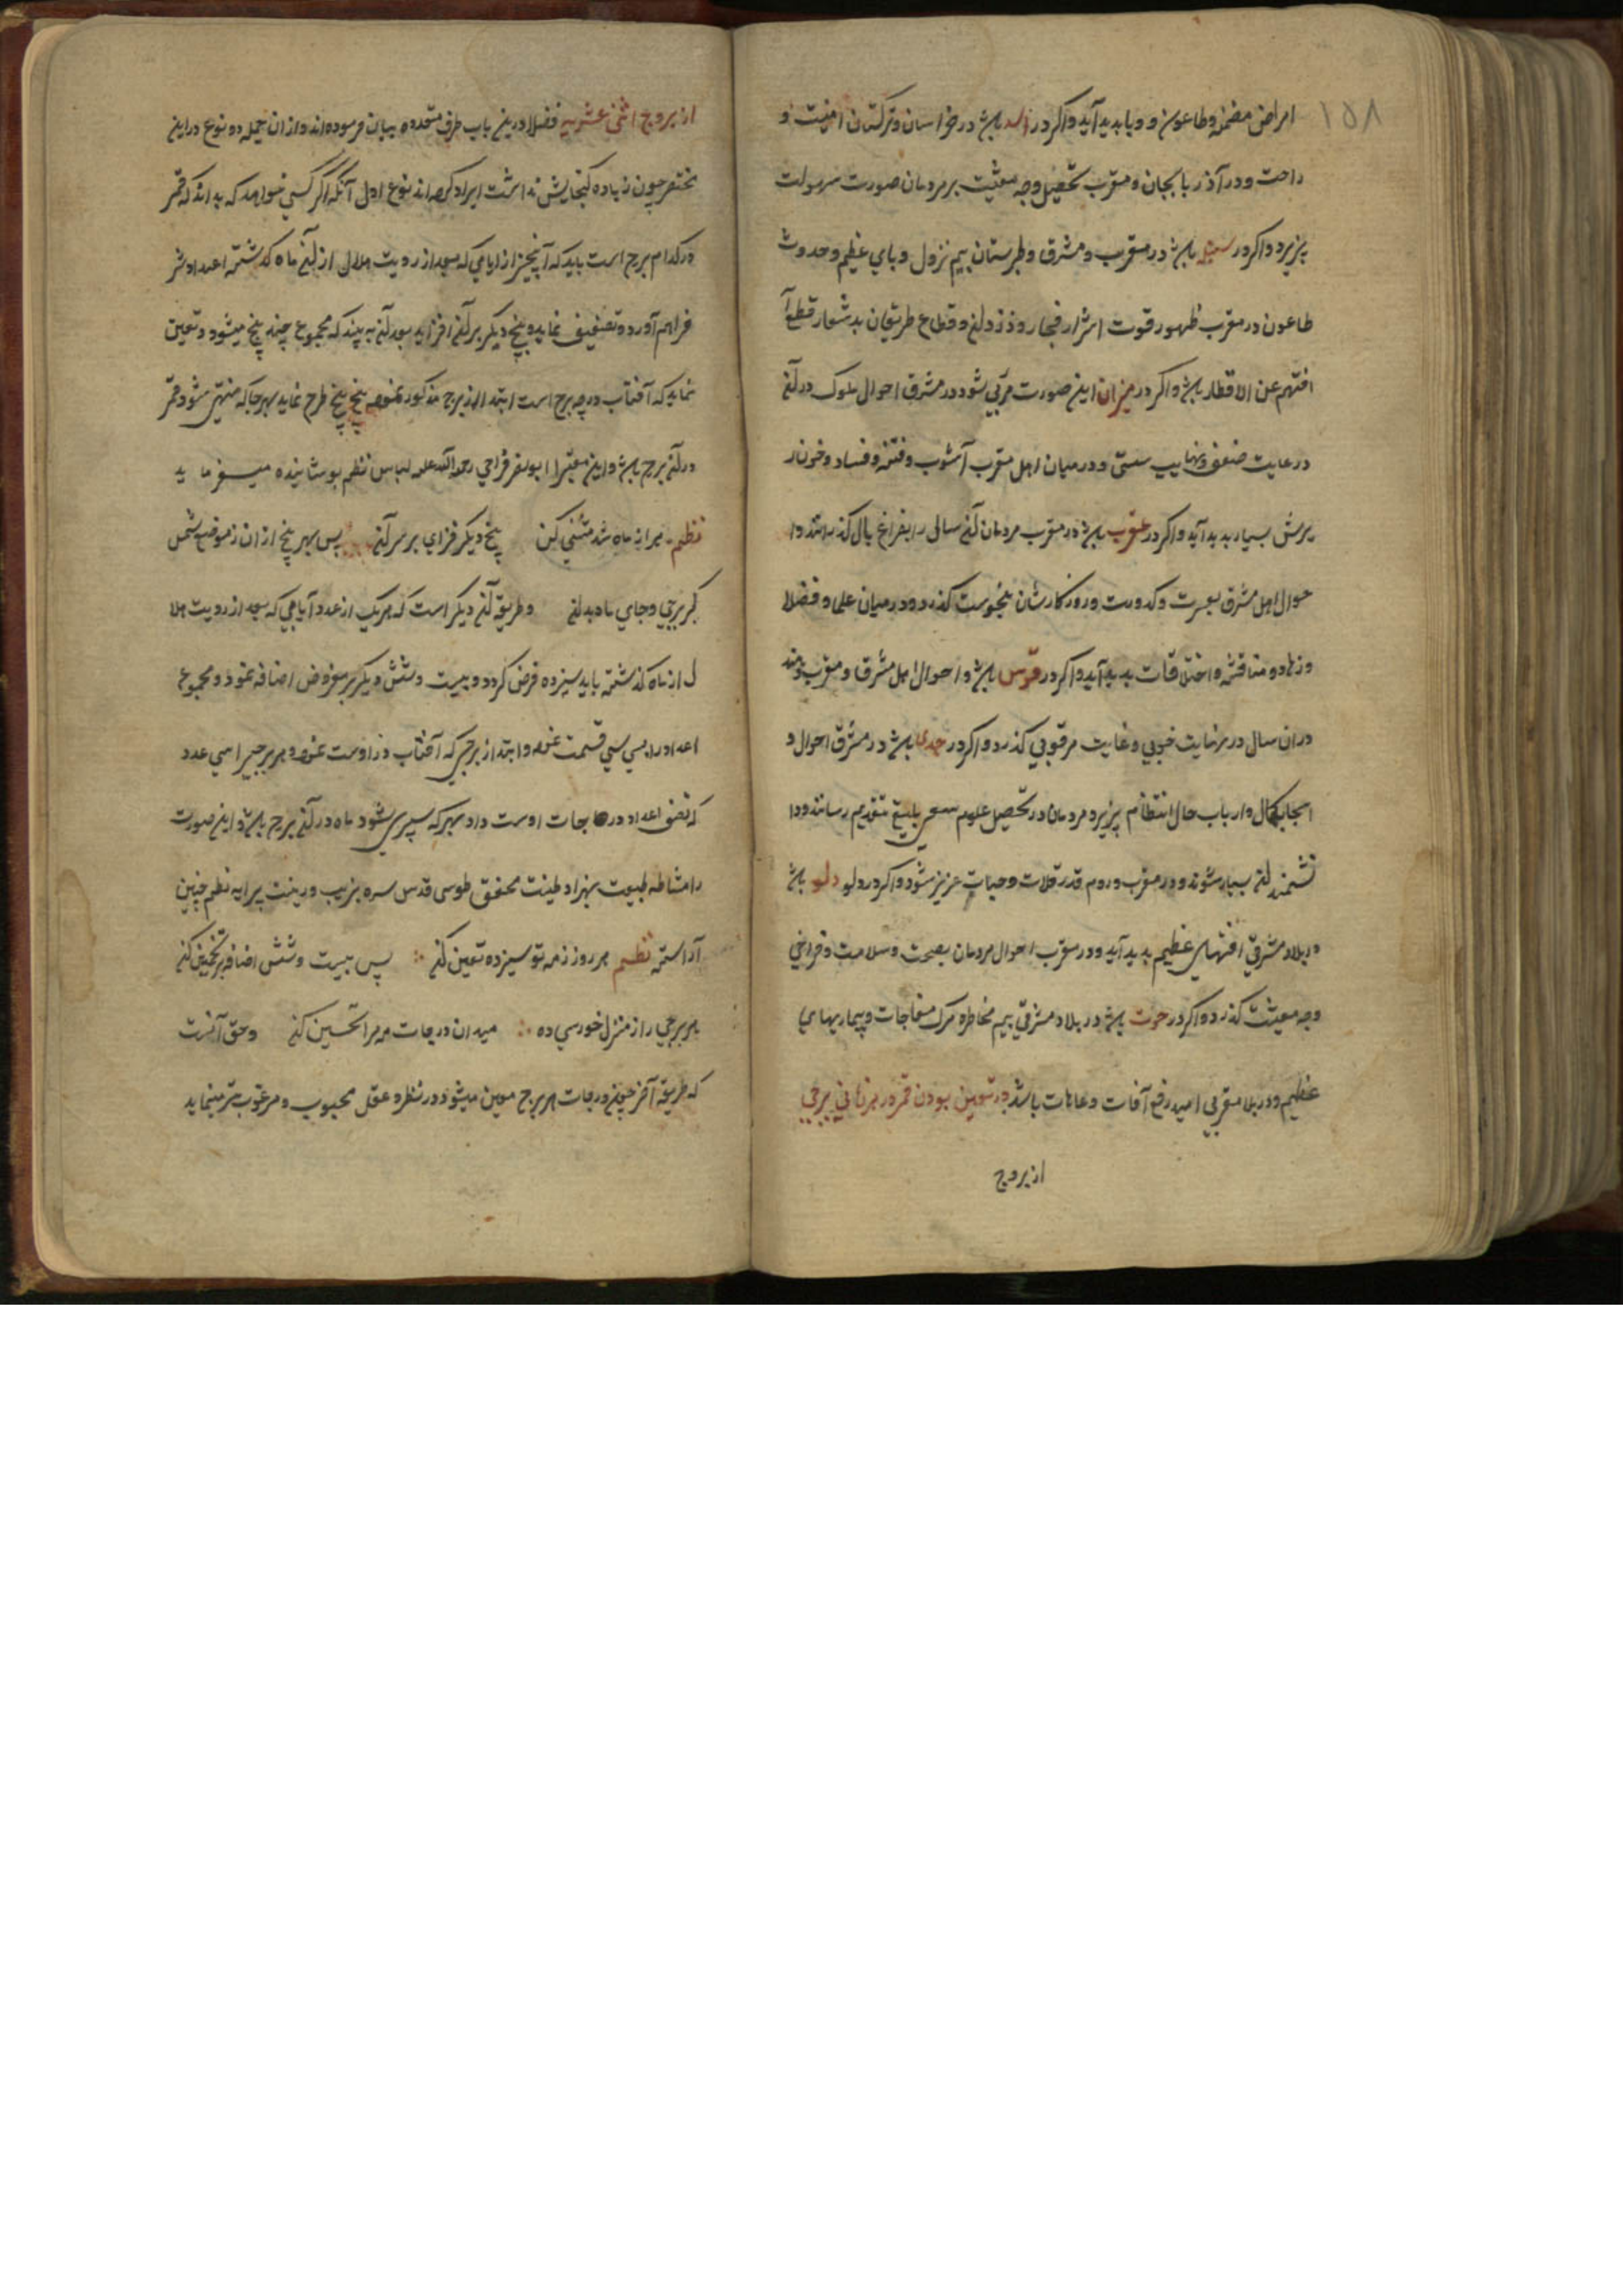 ۱۵۸
امراض مضمنه وطاعون و وبا بدید آید واکر در اسد باشد در خراسان وترکستان امنیت و
راحت ودر آذربایجان ومغرب تحصیل وجه معیشت بر مردمان صورت سهولت
پزیرد واکر در سنبله باشد در مغرب ومشرق وطبرستان بیم نزول وبای عظیم وحدوث
طاعون در مغرب ظهور قوت اشرار فجار ودزدان وقطاع طریقان بد شعار قطع آ
افتهم عن الاقطار باشد واکر در میزان این صورت مرئی شود در مشرق احوال ملوک در آن
در غایت ضعف ونهایت سستی ودر میان اهل مغرب آشوب وفتنه وفساد وخونار
یرش بسیار بدید آید واکر در عقرب باشد در مغرب مردمان آن سالی را بفراغ بال کذرانند وا
حوال اهل مشرق بعسرت وکدورت وروزکارشان بنحوست کذرد ودر میان علی وفضلا
وزهاد ومناقشه واختلافات بدید آید واکر در قوس باشد واحوال اهل مشرق ومغرب
دران سال در نهایت خوبی وغایت مرغوبی کذرد واکر در جدی باشد در مشرق احوال و
اصحاب کمال وارباب حال انتظام پزیرد ومردمان در تحصیل علوم سعی بلیغ بتقدیم رسانند ودا
نشمندان بسیار شوند ودر مغرب وروم قدر غلات وحبات عزیز شود واکر در دلو دلو باشد
در بلاد مشرقی افتهای عظیم بدید آید ودر مغرب احوال مردمان بصحت وسلامت وفراخی
وجه معیشت کذرد واکر در حوت باشد در بلاد مشرقی بیم مخاطره مرک مفاجات وبیماریهای
عظیم ودر بلاد مغربی امید رفع آفات وعاهات باشد در تعیین بودن قمر در هر زمانی ببرجی
از بروج
از بروج اثنی عشریه فضلا درین باب طرق متعدده بیان فرموده اند واز ان جمله دو نوع دراین
مختصر چون زیاده کنجایش نداشت ایراد کرده اند نوع اول آنکه اکر کسی خواهد که بداند که قمر
در کدام برج است باید که آنچیز از ایامی که بعد از رویت هلال از آن ماه کذشته اعدادش
فراهم آورد وتضعیف نماید وپنج دیکر بر آن افزاید بعد آن به بیند که مجموع چند پنج میشود وتعین
نماید که آفتاب در چه برج است ابتدا از برج مذکور نموده پنج پنج طرح نماید بهر جا که منتهی شود قمر
در آن برج باشد واین معنی را ابونصر فراحی رحمة الله علیه لباس نظم پوشانیده میفرماید
نظم هر انه ماه شد مثنی کن پنج دیکر فزای بر سر آن پس بهر پنج از ان زموضع شمس
کیر برجی وجای ماه بدان وطریقه آن دیکر است که هریک از عدد آیامی که بعد از رویت هلا
ل از ماه کذشته باید سیزده فرض کردد وبیست وشش دیکر بر مفروض اضافه نموذ ومجموع
اعداد را بسی سی قسمت نموده وابتدا از برجی که آفتاب دزاوست نموده وهر برجیرا سی عدد
که تضف اعداد درجات اوست داد بهر که سپری شود ماه در آن برج باشد واین صورت
را مشاطه طبیعت بهزاد طینت محقق طوسی قدس سره بزیب وزینت پیرایه نظم چنین
آراسته نظم هر روز زمه تو سیزده تعین کن پس بیست وشش اضافه بر تخمین کن
هر برجی را از منزل خور سی ده میدان درجات مه مرا تحسین کن وحق آنست
که طریقه آخر چون درجات هر برج معین میشود در نظر وعقل محبوب ومرغوب تر مینماید